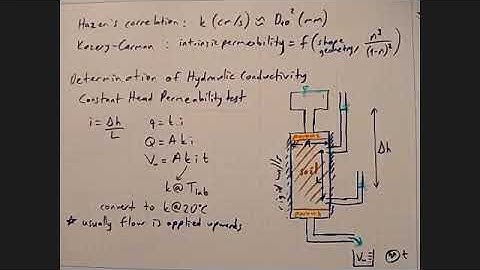 Hazen's correlation : k (cm/s) ≈ D₁₀² (mm)
Kozeny-Carman : intrinsic permeability = f (shape geometry, n³/(1-n)²)
Determination of Hydraulic Conductivity
Constant Head Permeability test
i = Δh/L
q = k i
Q = A k i
V = A k i t
k @ Tlab
convert to k @ 20°C
* usually flow is applied upwards
porous
A
L
soil
rigid walls
porous
Δh
V
t